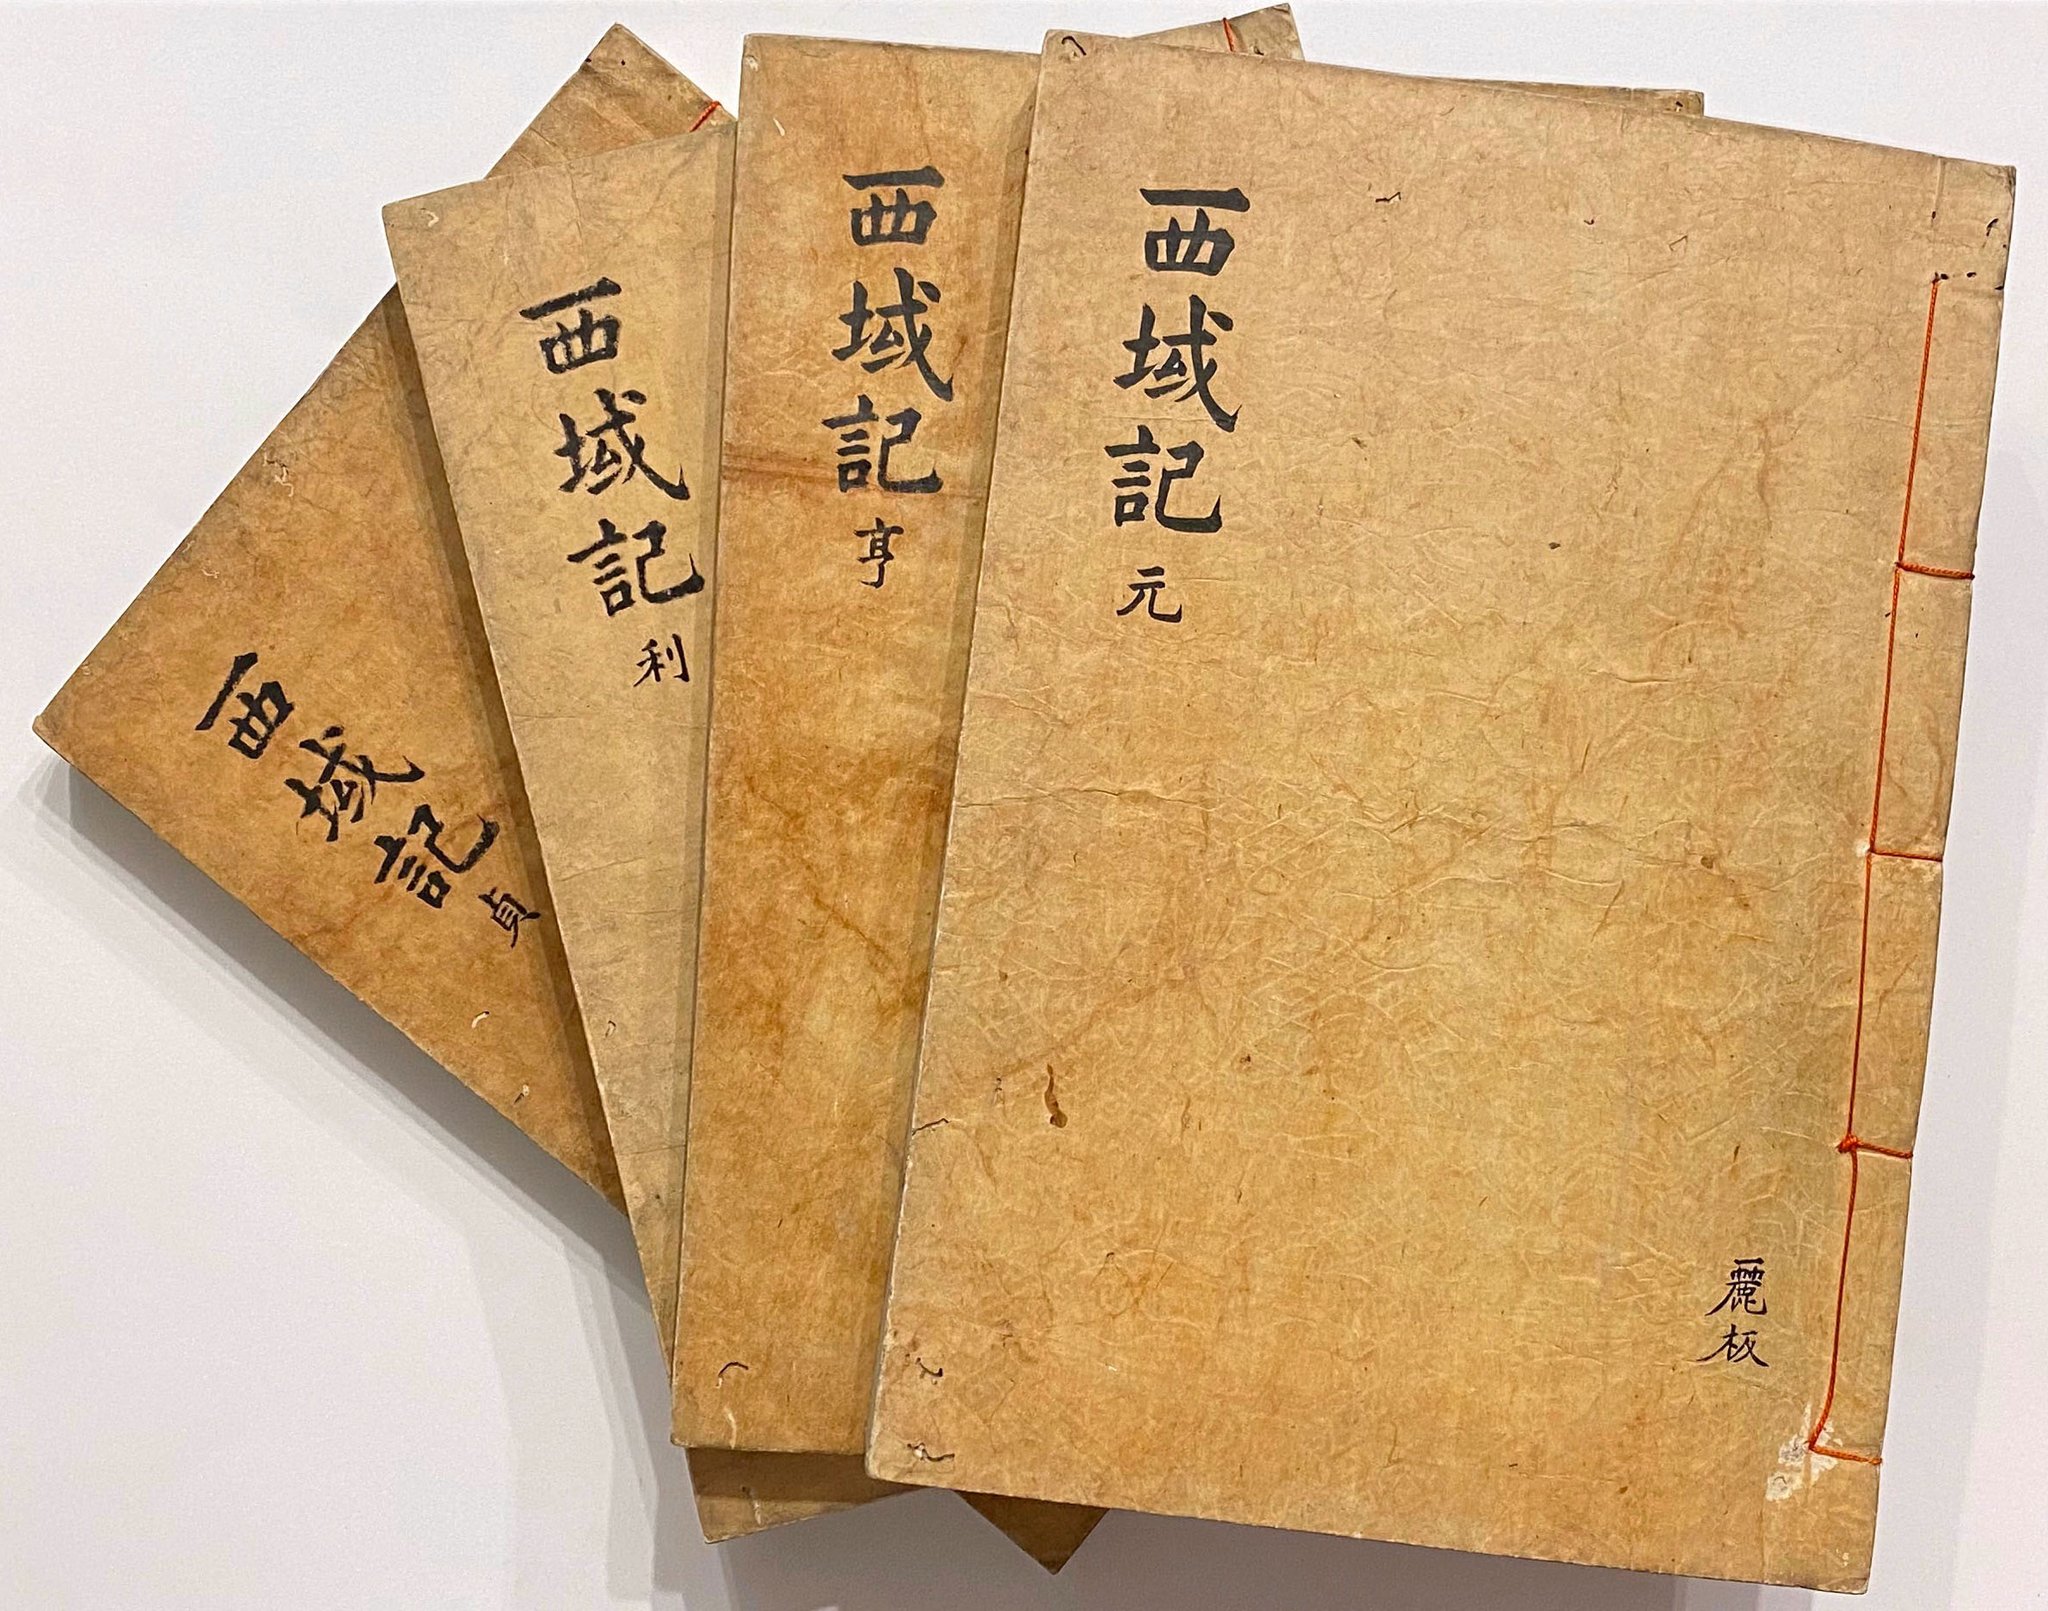 西域記 元
麗板
西域記 亨
西域記 利
西域記 貞